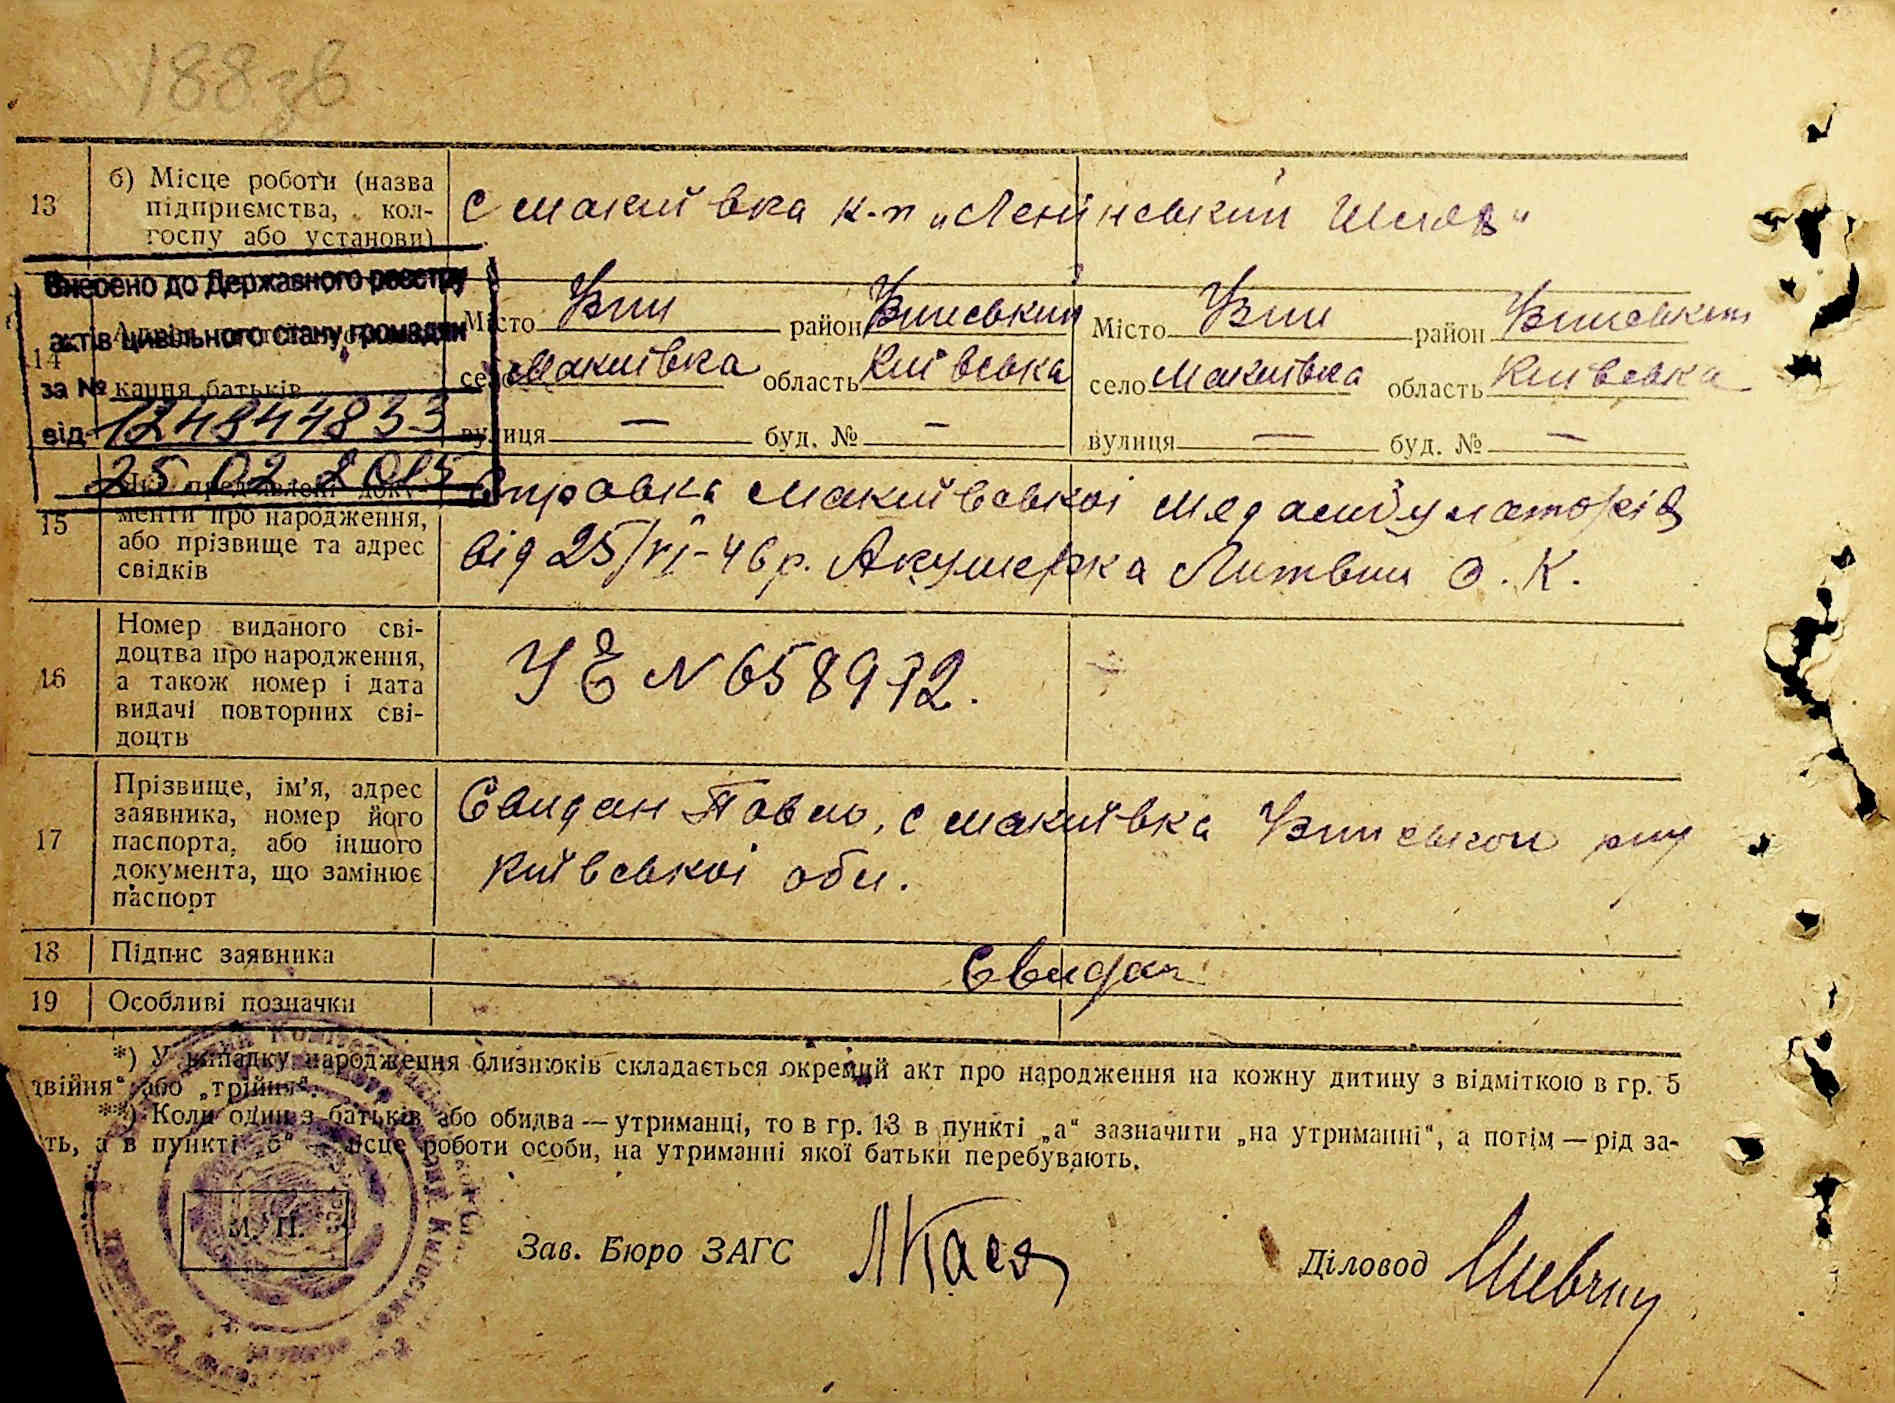 188зв
13
б) Місце роботи (назва
підприємства, кол-
госпу або установи)
с Макиївка к-п „Ленінський Шлях"
Внесено до Державного реєстру
актів цивільного стану громадян
за №
від 124844833
25 02 2015
14
кання батьків
Місто Узин район Узинський
село Макиївка область Київська
вулиця — буд. № —
Місто Узин район Узинський
село Макиївка область Київська
вулиця — буд. № —
15
Які представлені доку-
менти про народження,
або прізвище та адрес
свідків
Справка Макиївської Медамбулаторії
від 25/VI-46р. Акушерка Литвин О. К.
16
Номер виданого сві-
доцтва про народження,
а також номер і дата
видачі повторних сві-
доцтв
УЕ N 658972.
17
Прізвище, ім'я, адрес
заявника, номер його
паспорта, або іншого
документа, що замінює
паспорт
Свидан Павло, с Макиївка Узинського р-ну
Київської обл.
18
Підпис заявника
Свидан
19
Особливі позначки
*) У випадку народження близнюків складається окремий акт про народження на кожну дитину з відміткою в гр. 5
двійня" або „трійня".
**) Коли один з батьків або обидва — утриманці, то в гр. 13 в пункті „а" зазначити „на утриманні", а потім — рід за-
ть, а в пункті „б" — місце роботи особи, на утриманні якої батьки перебувають.
М. П.
Зав. Бюро ЗАГС
Діловод